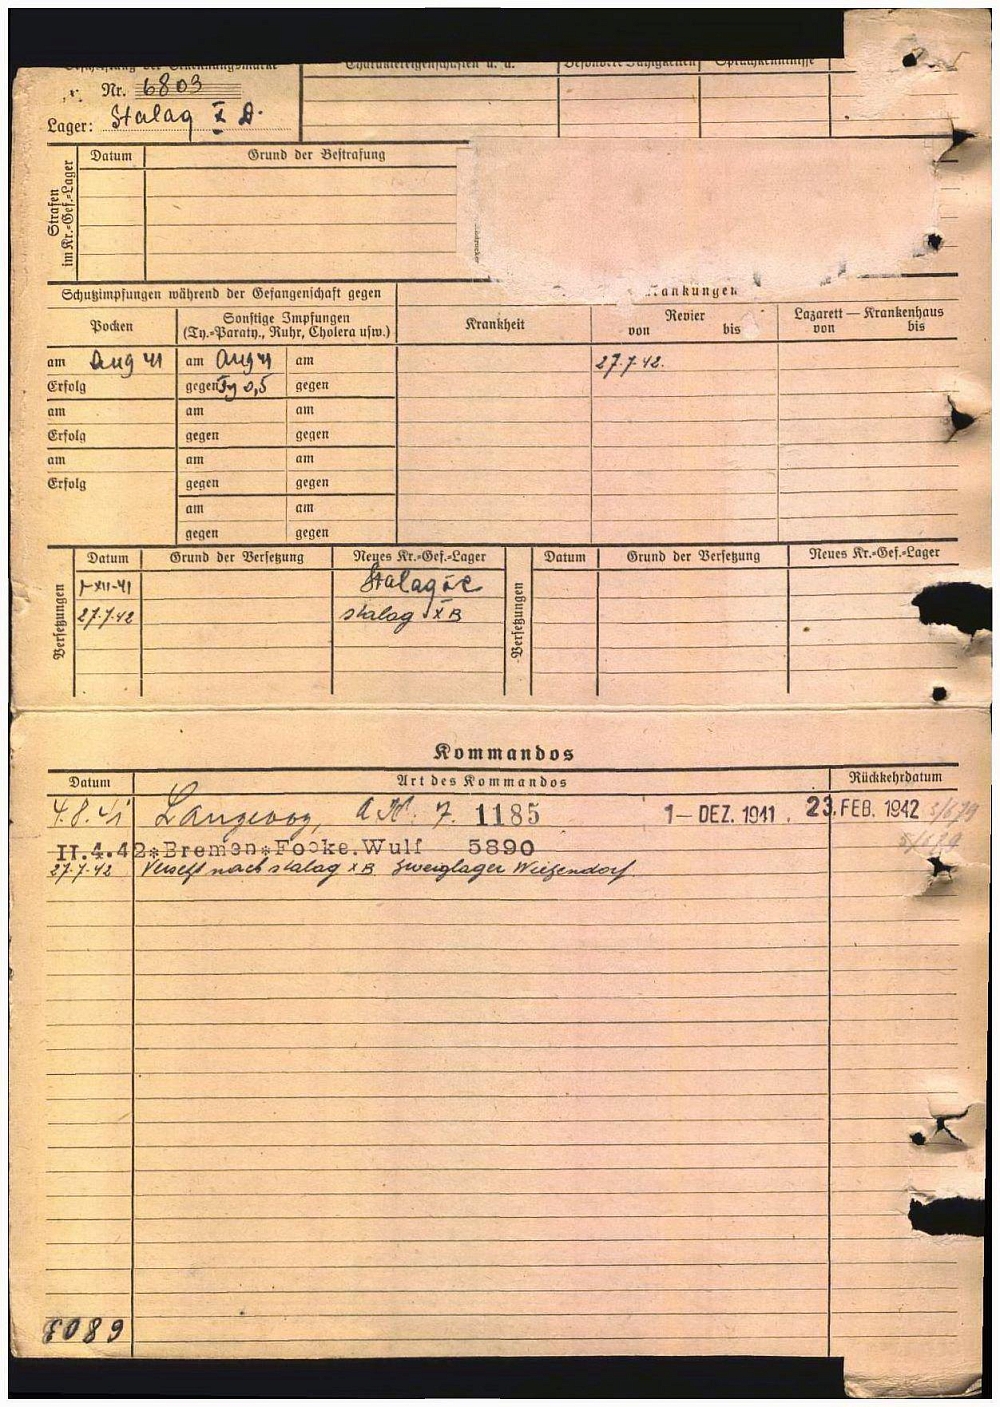 Beschriftung der Erkennungsmarke Charaktereigenschaften u. ä. Besondere Fähigkeiten Sprachkenntnisse
Nr. 6803
Lager: Stalag X D.
Strafen im Kr.=Gef.=Lager Datum Grund der Bestrafung
Schutzimpfungen während der Gefangenschaft gegen
Pocken Sonstige Impfungen Krankheit Revier Lazarett — Krankenhaus
(Ty.=Paraty., Ruhr, Cholera usw.) von bis von bis
am Aug 41 am Aug 41 am 27.7.42.
Erfolg gegen Ty 0,5 gegen
am am am
Erfolg gegen gegen
am am am
Erfolg gegen gegen
am am
gegen gegen
Versetzungen Datum Grund der Versetzung Neues Kr.=Gef.=Lager Versetzungen Datum Grund der Versetzung Neues Kr.=Gef.=Lager
1-XII-41 Stalag
27.7.42 Stalag X B
Kommandos
Datum Art des Kommandos Rückkehrdatum
4.8.41 Langeoog, 7. 1185 1— DEZ. 1941. 23. FEB. 1942
11.4.42*Bremen*Focke.Wulf 5890
27.7.42 Versetzt nach Stalag X B Zweiglager Wietzendorf
8089